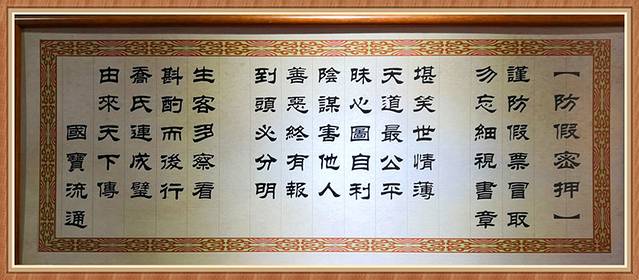 【防假密押】
謹防假票冒取
勿忘細視書章
堪笑世情薄
天道最公平
昧心圖自利
陰謀害他人
善惡終有報
到頭必分明
生客多察看
斟酌而後行
喬氏連成璧
由來天下傳
國寶流通